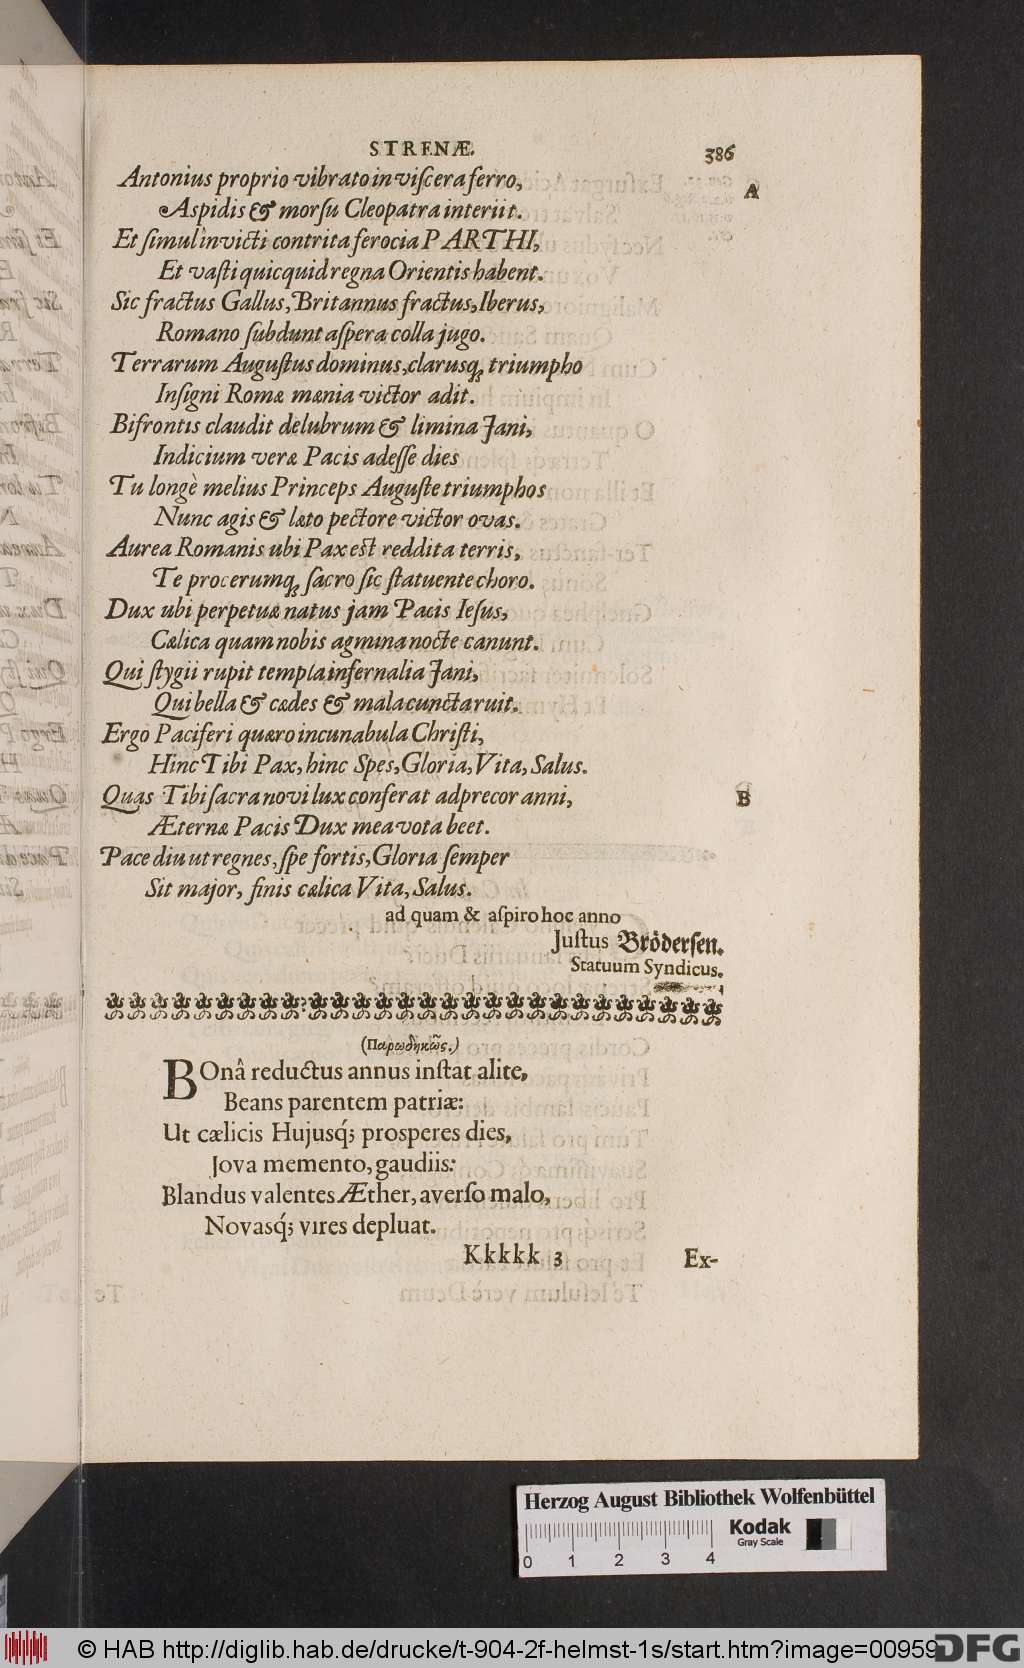 STRENÆ.
386
Antonius proprio vibrato in viſcera ferro,
A
Aspidis & morſu Cleopatra interiit.
Et ſimul invicti contrita ferocia PARTHI,
Et vaſti quicquid regna Orientis habent.
Sic fractus Gallus, Britannus fractus, Iberus,
Romano ſubdunt aſpera colla jugo.
Terrarum Auguſtus dominus, clarusq; triumpho
Inſigni Romæ mænia victor adit.
Bifrontis claudit delubrum & limina Jani,
Indicium veræ Pacis adeſſe dies
Tu longè melius Princeps Auguſte triumphos
Nunc agis & læto pectore victor ovas.
Aurea Romanis ubi Pax eſt reddita terris,
Te procerumq; ſacro ſic ſtatuente choro.
Dux ubi perpetuæ natus jam Pacis Ieſus,
Cælica quam nobis agmina nocte canunt.
Qui ſtygii rupit templa infernalia Jani,
Qui bella & cædes & mala cuncta ruit.
Ergo Paciferi quæro incunabula Chriſti,
Hinc Tibi Pax, hinc Spes, Gloria, Vita, Salus.
Quas Tibi ſacra novi lux conferat adprecor anni,
B
Æternæ Pacis Dux mea vota beet.
Pace diu ut regnes, ſpe fortis, Gloria ſemper
Sit major, finis cælica Vita, Salus.
ad quam & aſpiro hoc anno
Juſtus Brödersen.
Statuum Syndicus.
(Παρωδικῶς.)
BOnâ reductus annus inſtat alite,
Beans parentem patriæ:
Ut cælicis Hujusq́; prosperes dies,
Jova memento, gaudiis:
Blandus valentes Æther, averſo malo,
Novasq́; vires depluat.
Kkkkk 3
Ex-
Herzog August Bibliothek Wolfenbüttel
Kodak
Gray Scale
0 1 2 3 4
© HAB http://diglib.hab.de/drucke/t-904-2f-helmst-1s/start.htm?image=00959
DFG